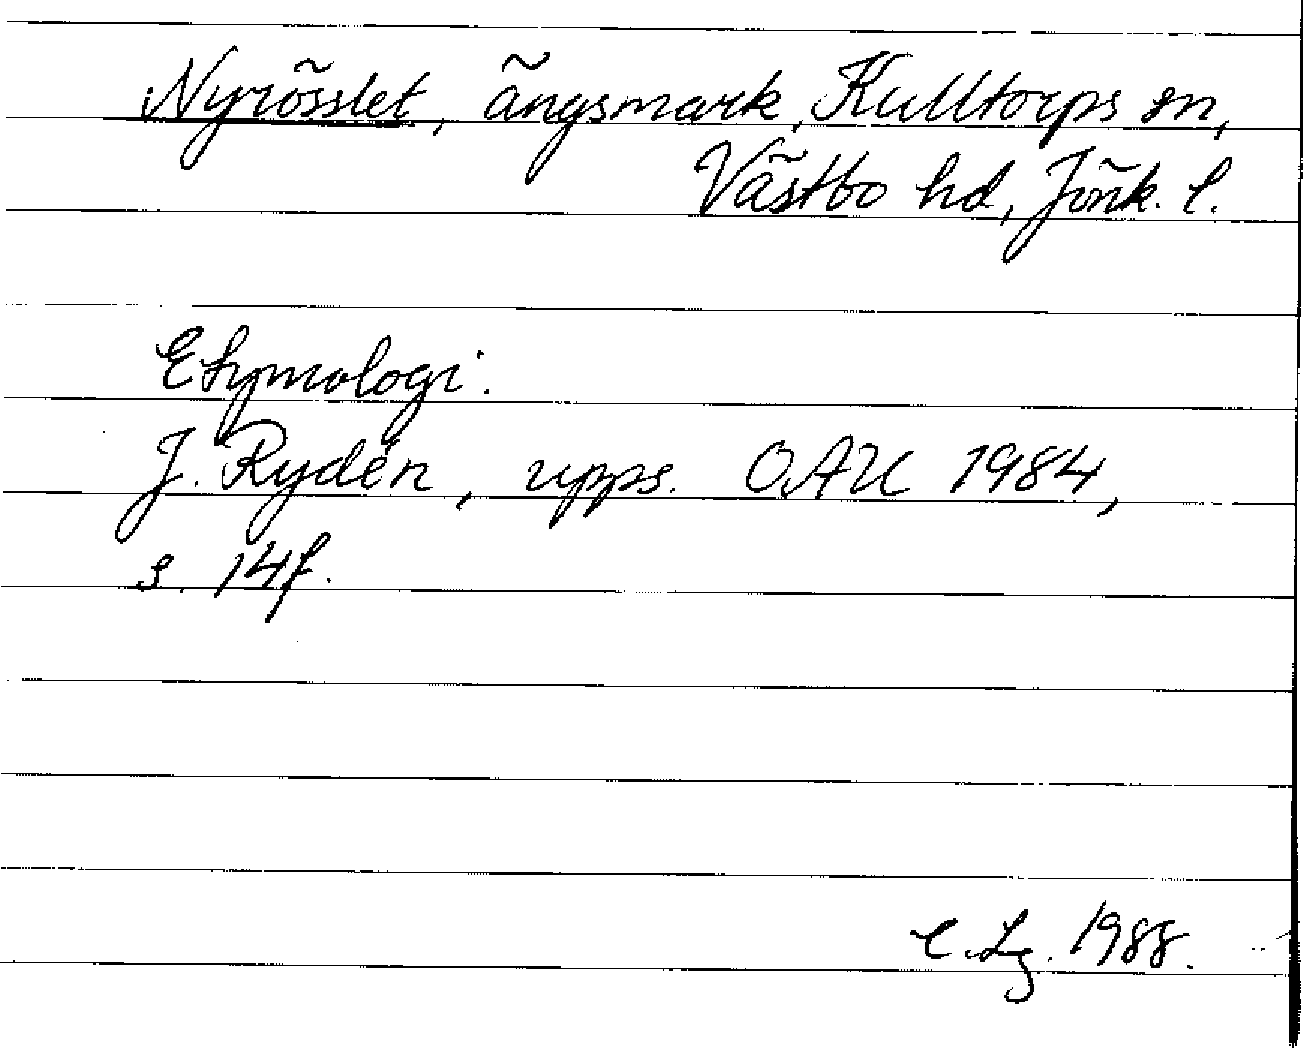 Nyrösslet, ängsmark, Kulltorps sn,
Västbo hd, Jönk. l.
Etymologi.
J. Rydén, upps. OAU 1984,
s. 14f.
C. Lg. 1988.